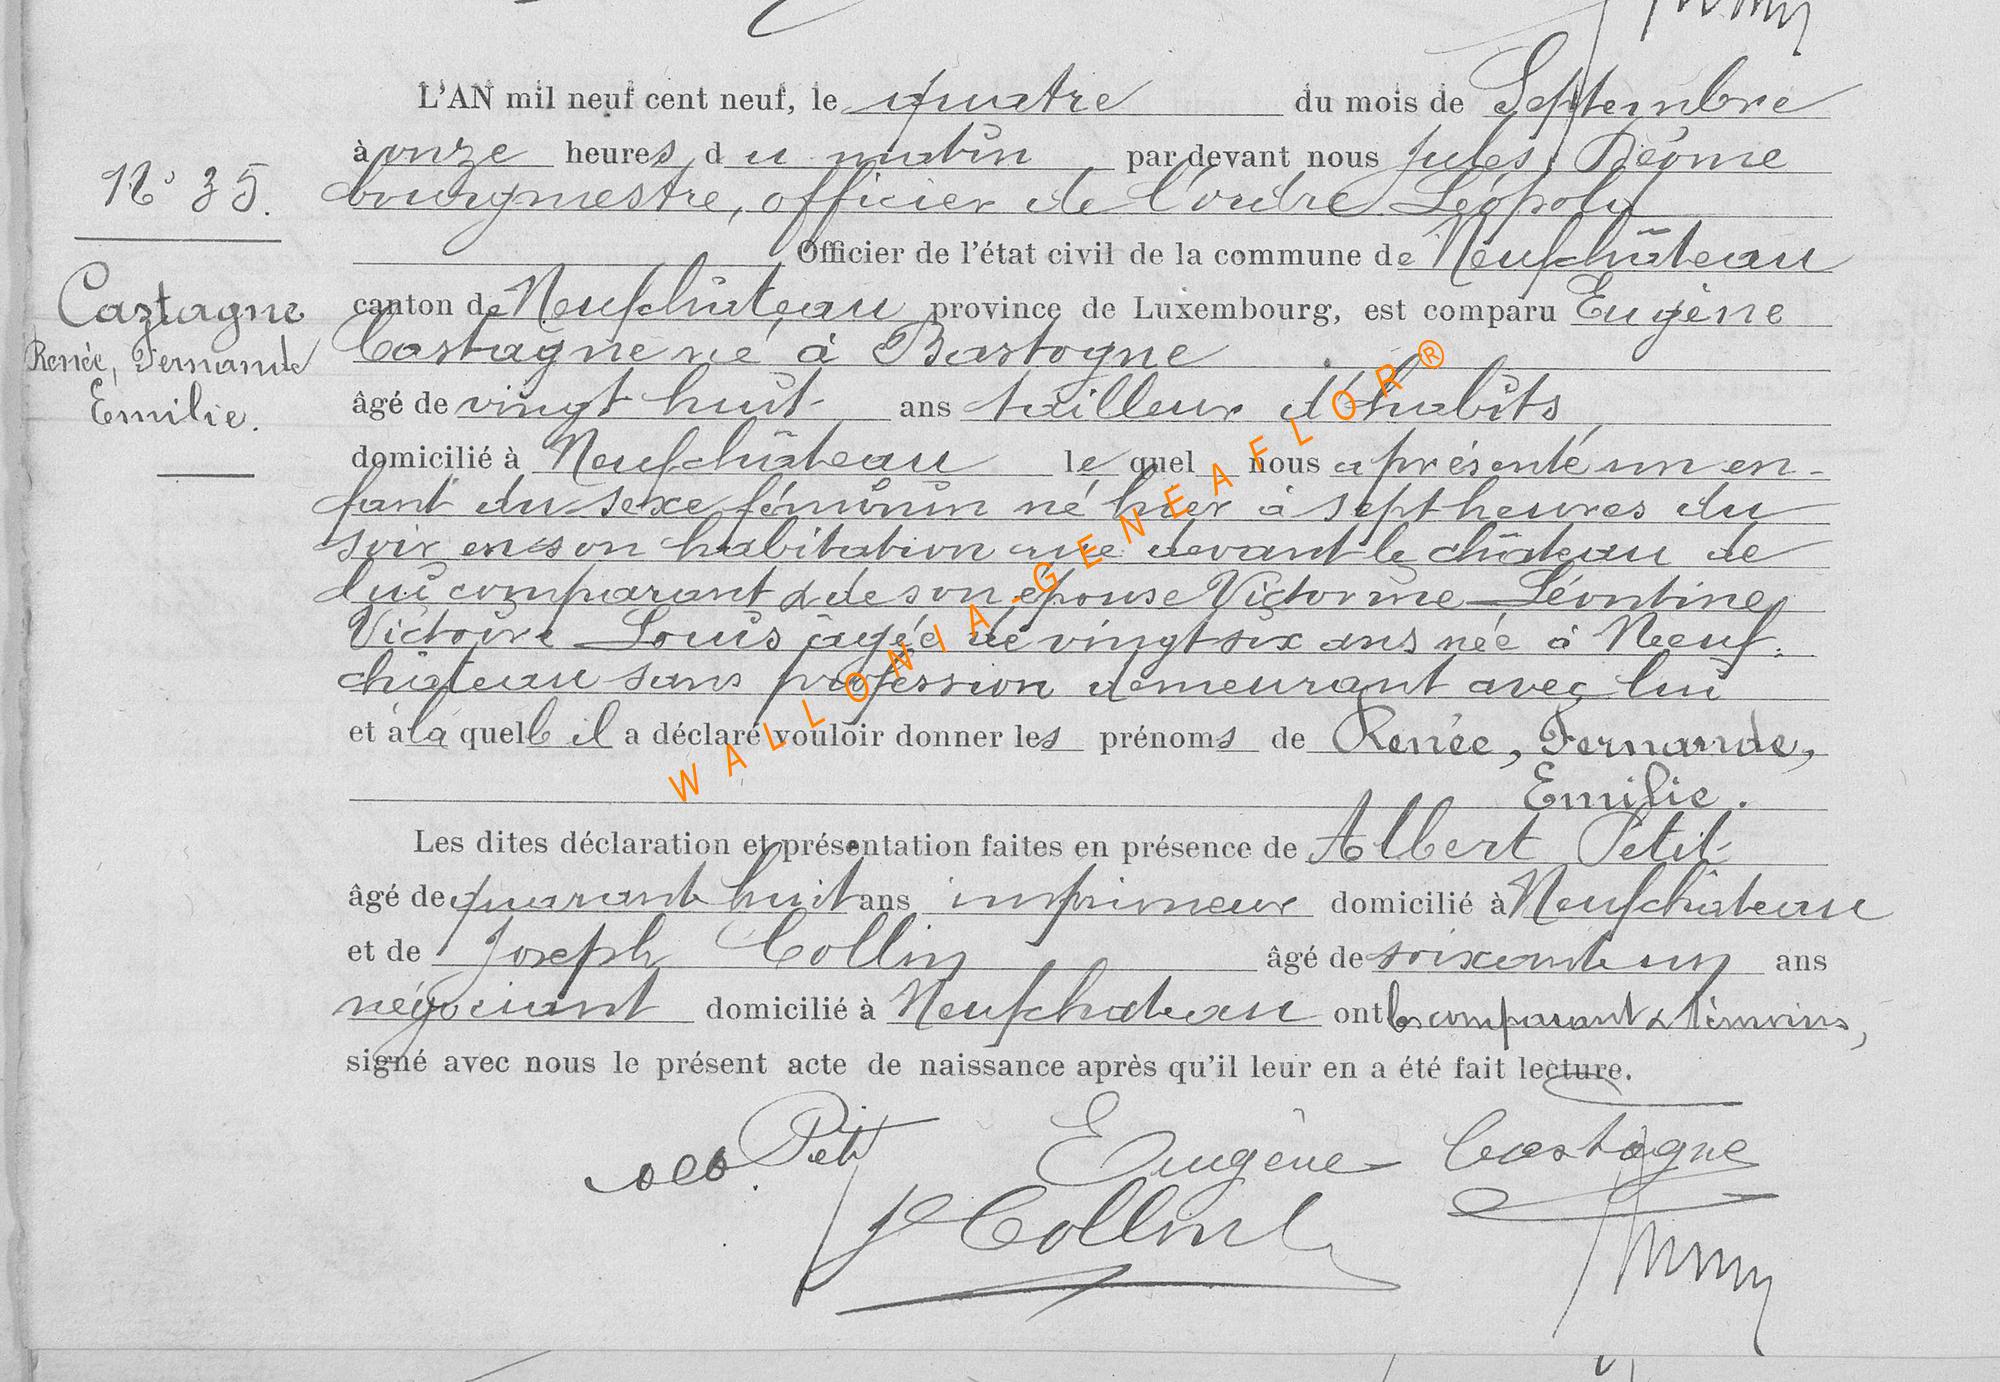 L'AN mil neuf cent neuf, le quatre du mois de Septembre
à onze heures du matin par devant nous Jules
bourgmestre, officier de l'ordre Léopold
Officier de l'état civil de la commune de Neufchâteau
N° 35.
canton de Neufchâteau province de Luxembourg, est comparu Eugène
Castagne né à Bastogne
Castagne
Renée, Fernande
Emilie.
âgé de vingt huit ans tailleur d'habits
domicilié à Neufchâteau lequel nous a présenté un en-
fant du sexe féminin né hier à sept heures du
soir en son habitation rue devant le château de
lui comparant & de son épouse Victorine Léontine
Victoire Louis âgée de vingt six ans née à Neuf-
château sans profession demeurant avec lui
et à laquelle il a déclaré vouloir donner les prénoms de Renée, Fernande,
Emilie.
Les dites déclaration et présentation faites en présence de Albert Petit
âgé de quarante huit ans imprimeur domicilié à Neufchâteau
et de Joseph Collin âgé de soixante un ans
négociant domicilié à Neufchateau ont les comparant & témoins,
signé avec nous le présent acte de naissance après qu'il leur en a été fait lecture.
Petit Eugène Castagne
J Collin
WALLONIA-GENEAFLOR®